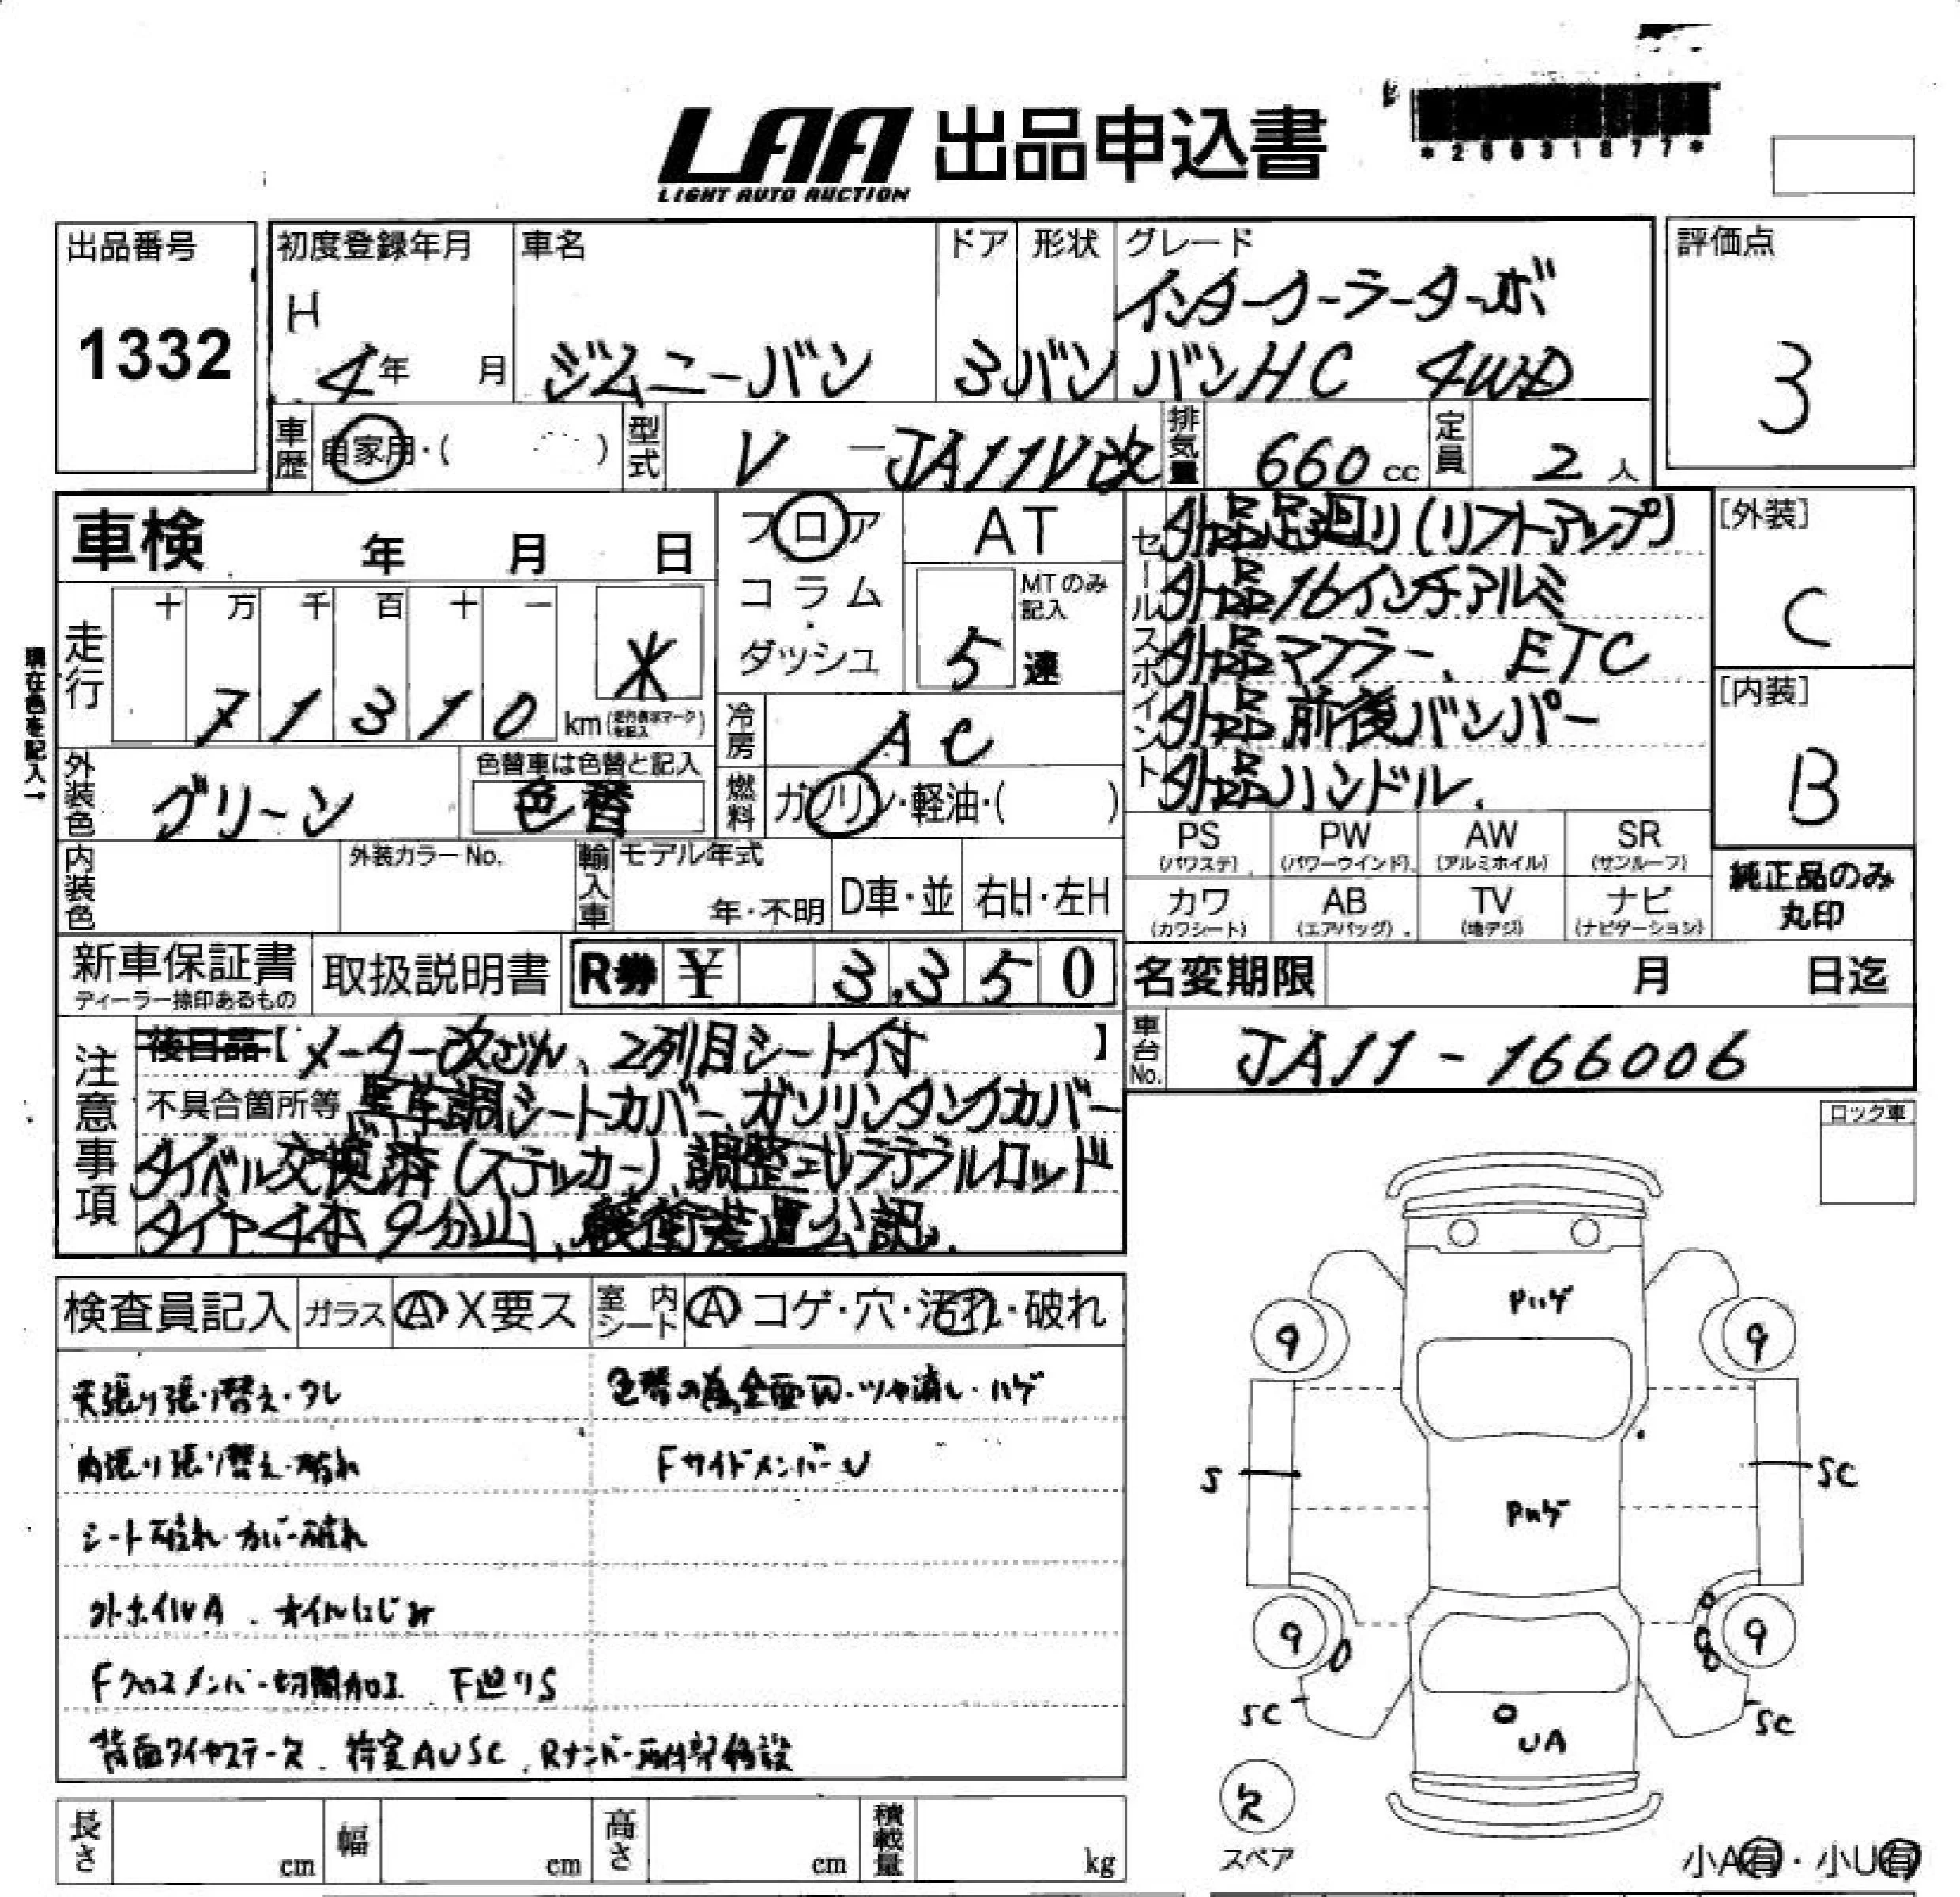 LAA 出品申込書
LIGHT AUTO AUCTION
*25031877*
出品番号
1332
初度登録年月
H
4年 月
車名
ジムニーバン
ドア
3
形状
バン
グレード
インタークーラーターボ
バンHC 4WD
評価点
3
車歴
自家用・( )
型式
V-JA11V改
排気量
660cc
定員
2人
車検 年 月 日
フロア
コラム
ダッシュ
AT
MTのみ記入
5速
セールスポイント
外品足廻り(リフトアップ)
外品16インチアルミ
外品マフラー、ETC
外品前後バンパー
外品ハンドル、
[外装]
C
[内装]
B
現在色を記入→
走行
十 万 千 百 十 一
7 1 3 1 0 km
*
冷房
AC
燃料
ガソリン・軽油・( )
外装色
グリーン
色替車は色替と記入
色替
内装色
外装カラーNo.
輸入車
モデル年式
年・不明
D車・並
右H・左H
PS
(パワステ)
PW
(パワーウインド)
AW
(アルミホイル)
SR
(サンルーフ)
カワ
(カワシート)
AB
(エアバッグ)
TV
(地デジ)
ナビ
(ナビゲーション)
純正品のみ
丸印
新車保証書
ディーラー捺印あるもの
取扱説明書
R券 ¥ 3,350
名変期限 月 日迄
車台No.
JA11-166006
注意事項
後日品【メーター改ざん、2列目シート付】
不具合箇所等 黒革調シートカバー、ガソリンタンクカバー
タイベル交換済(ステッカー)、調整式ラテラルロッド
タイヤ4本9分山、緩衝装置公認、
ロック車
検査員記入
ガラス A X要ス
室内シート A コゲ・穴・汚れ・破れ
天張り張り替え・タレ
内張り張り替え・破れ
シート破れ・カバー破れ
外ホイルA、オイルにじみ
Fクロスメンバー切開加工 下廻りS
背面タイヤステー欠、 AUSC、Rナンバー 移設
色替の為全面 ・ツヤ消し・ハゲ
FサイドメンバーU
Pハゲ
9
9
S
SC
Pハゲ
9
9
SC
SC
UA
欠
スペア
小A有・小U有
長さ cm
幅 cm
高さ cm
積載量 kg